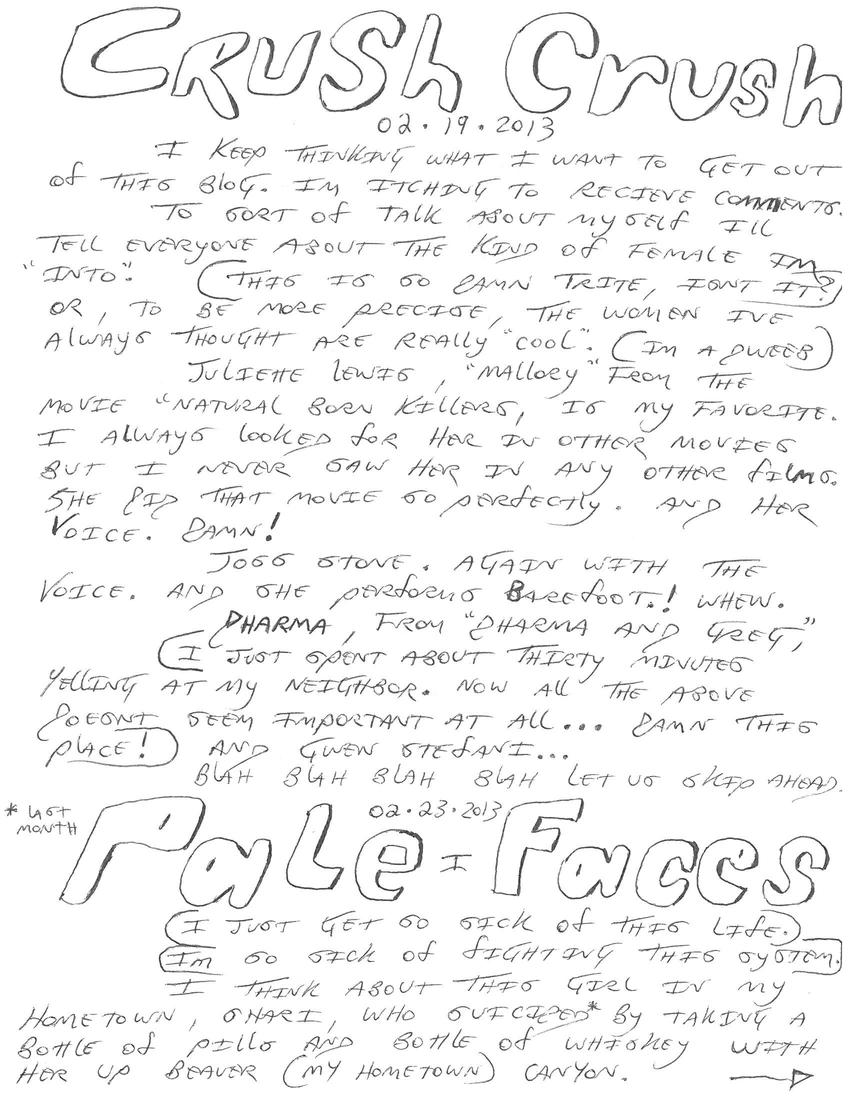 Crush Crush
02.19.2013
I KEEP THINKING WHAT I WANT TO GET OUT
of THIS BLOG. IM ITCHING TO RECIEVE COMMENTS.
TO SORT of TALK ABOUT MYSELF ILL
TELL EVERYONE ABOUT THE KIND of FEMALE IM
"INTO". (THIS IS SO DAMN TRITE, ISNT IT?)
OR, TO BE MORE PRECISE, THE WOMEN IVE
ALWAYS THOUGHT ARE REALLY "COOL". (IM A DWEEB)
JULIETTE LEWIS, "MALLORY" FROM THE
MOVIE "NATURAL BORN KILLERS, IS MY FAVORITE.
I ALWAYS LOOKED FOR HER IN OTHER MOVIES
BUT I NEVER SAW HER IN ANY OTHER FILMS.
SHE DID THAT MOVIE SO PERFECTLY. AND HER
VOICE. DAMN!
JOSS STONE. AGAIN WITH THE
VOICE. AND SHE PERFORMS BAREFOOT.! WHEW.
DHARMA, FROM "DHARMA AND GREG,"
(I JUST SPENT ABOUT THIRTY MINUTES
YELLING AT MY NEIGHBOR. NOW ALL THE ABOVE
DOESNT SEEM IMPORTANT AT ALL... DAMN THIS
PLACE!) AND GWEN STEFANI...
BLAH BLAH BLAH BLAH LET US SKIP AHEAD.
* LAST
MONTH
02.23.2013
PaLe-Faces
(I JUST GET SO SICK of THIS LIFE.)
(IM SO SICK of FIGHTING THIS SYSTEM.)
I THINK ABOUT THIS GIRL IN MY
HOMETOWN, SHARI, WHO SUICIDED* BY TAKING A
BOTTLE of PILLS AND BOTTLE of WHISKEY WITH
HER UP BEAVER (MY HOMETOWN) CANYON.